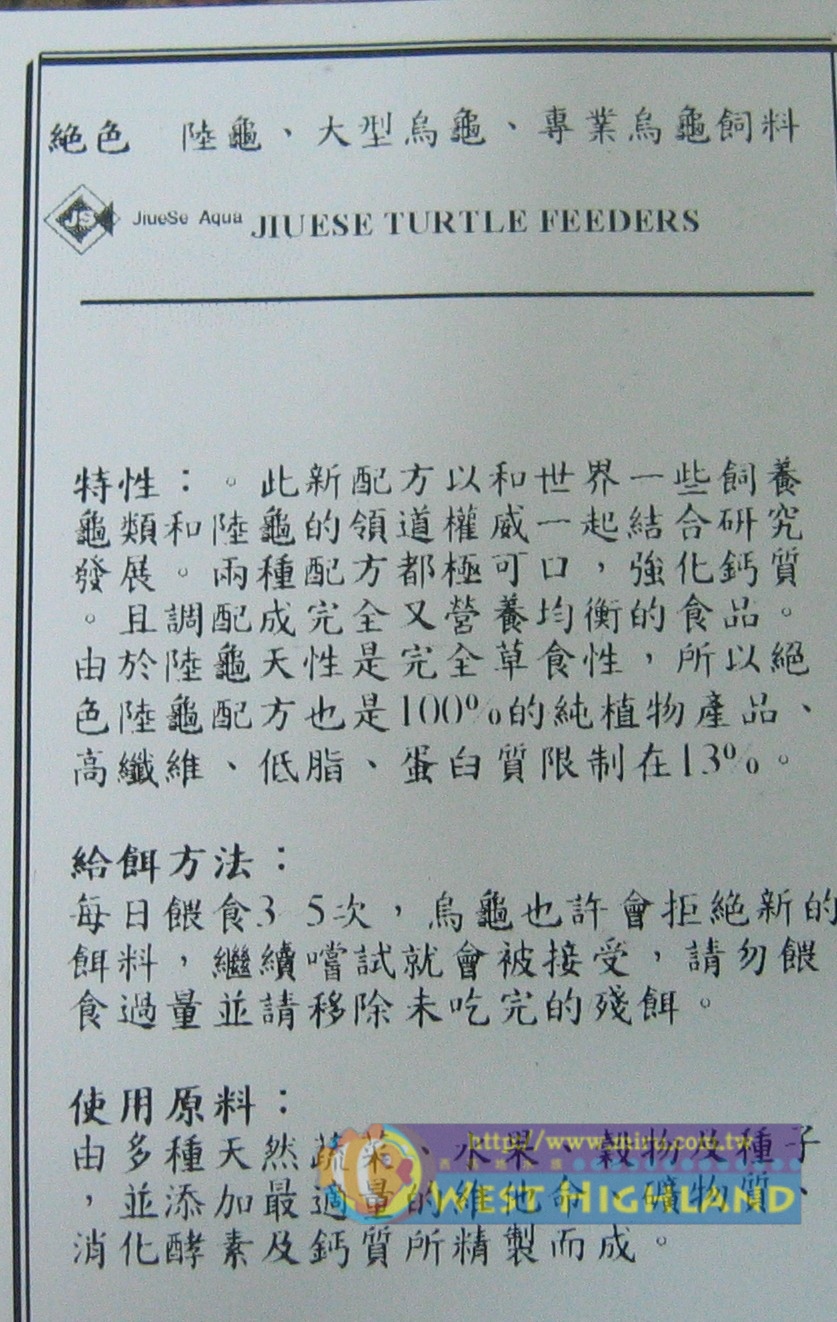 絕色 陸龜、大型烏龜、專業烏龜飼料
JS JiueSe Aqua JIUESE TURTLE FEEDERS
特性：。此新配方以和世界一些飼養
龜類和陸龜的領道權威一起結合研究
發展。兩種配方都極可口，強化鈣質
。且調配成完全又營養均衡的食品。
由於陸龜天性是完全草食性，所以絕
色陸龜配方也是100%的純植物產品、
高纖維、低脂、蛋白質限制在13%。
給餌方法：
每日餵食3 5次，烏龜也許會拒絕新的
餌料，繼續嚐試就會被接受，請勿餵
食過量並請移除未吃完的殘餌。
使用原料：
由多種天然蔬菜、水果、穀物及種子
，並添加最適量的維他命 礦物質、
消化酵素及鈣質所精製而成。
http://www.miru.com.tw
WEST HIGHLAND